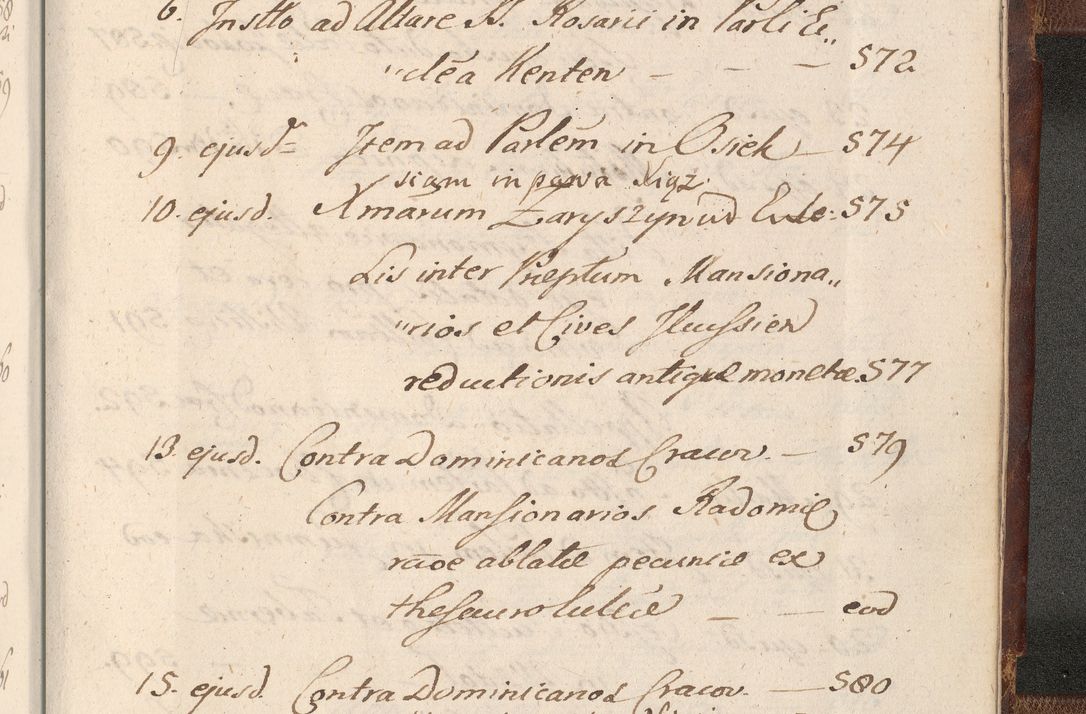 6. Instto ad Altare S. Rosarii in Parli E„
„cléa Kenten — — — 572
9. ejusd. Item ad Parlem in Osiek — 574
siam in pawa Xiąż
10. ejusd. Xmarum Zaryszynud Ecle: 575
Lis inter Preptum Mansiona„
„rios et Cives Ilkussien
reductionis antiquæ monetæ. 577
13. ejusd. Contra Dominicanos Cracov. — 579
Contra Mansionarios Radomie
rãoe ablatæ pecuniæ ex
thesauro — — eod
15. ejusd. Contra Dominicanos Cracov. — 580